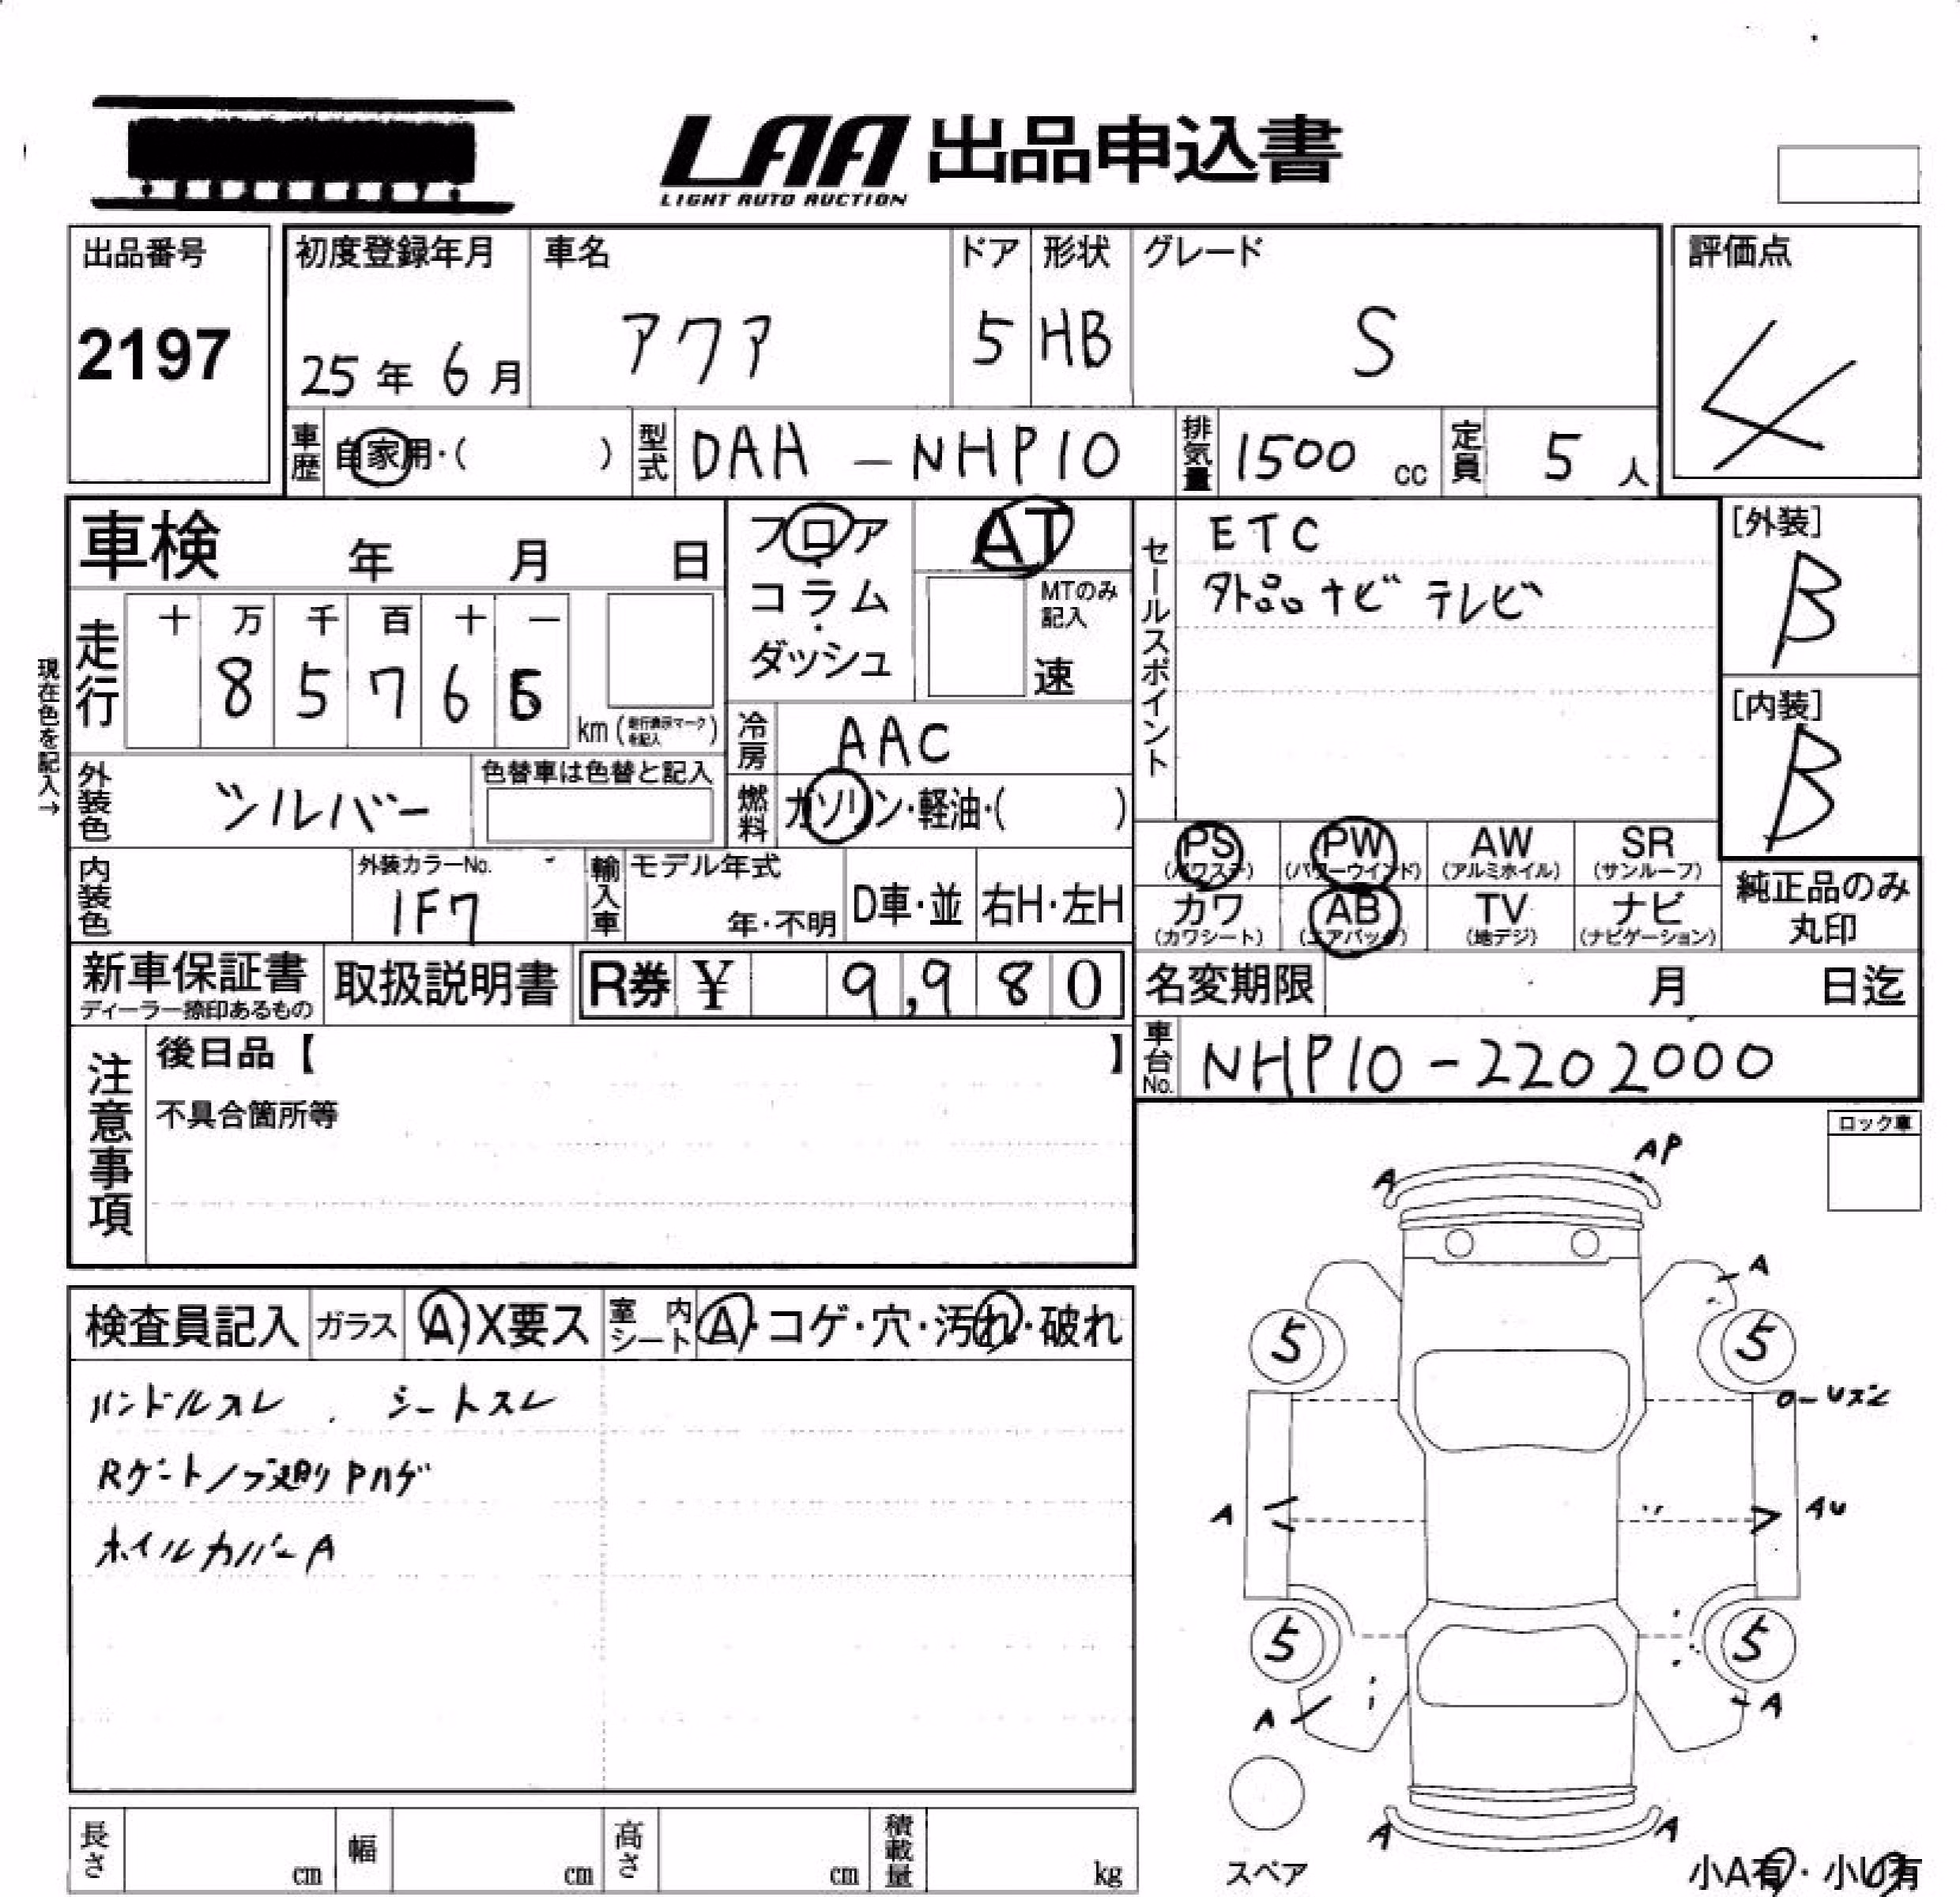 LAA 出品申込書
LIGHT AUTO AUCTION
出品番号
2197
初度登録年月
25年 6月
車名
アクア
ドア
5
形状
HB
グレード
S
評価点
4
車歴
自家用・( )
型式
DAH - NHP10
排気量
1500 cc
定員
5 人
車検 年 月 日
フロア
コラム
ダッシュ
AT
MTのみ
記入
速
セールスポイント
ETC
外品ナビ テレビ
[外装]
B
[内装]
B
現在色を記入→
走行
十 万 千 百 十 一
8 5 7 6
km (走行表示マークを記入)
冷房
AAC
外装色
シルバー
色替車は色替と記入
燃料
ガソリン・軽油・( )
PS (パワステ)
PW (パワーウインド)
AW (アルミホイル)
SR (サンルーフ)
カワ (カワシート)
AB (エアバック)
TV (地デジ)
ナビ (ナビゲーション)
純正品のみ
丸印
内装色
外装カラーNo.
1F7
輸入車
モデル年式
年・不明
D車・並
右H・左H
新車保証書
ディーラー捺印あるもの
取扱説明書
R券 ¥ 9,980
名変期限 月 日迄
車台No.
NHP10-2202000
注意事項
後日品【 】
不具合箇所等
ロック車
検査員記入
ガラス
A・X要ス
室内シート
A・コゲ・穴・汚れ・破れ
ハンドルスレ . シートスレ
Rゲートノブ廻りPハゲ
ホイルカバーA
A
AP
A
5
5
A
AU
5
5
A
A
A
A
スペア
小A有・小U有
長さ cm
幅 cm
高さ cm
積載量 kg